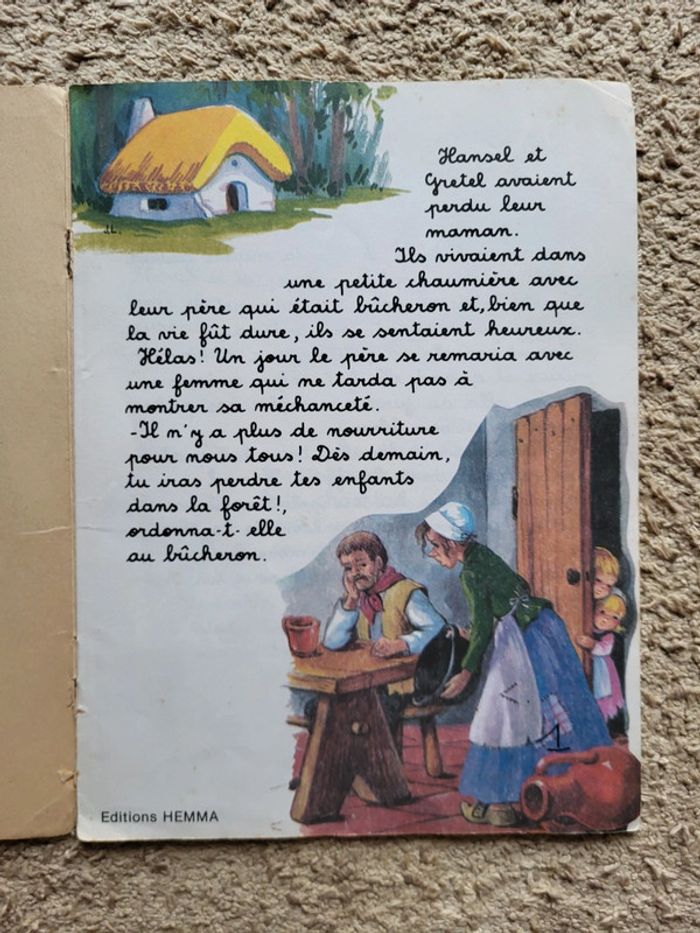 J.L.
Hansel et
Gretel avaient
perdu leur
maman.
Ils vivaient dans
une petite chaumière avec
leur père qui était bûcheron et, bien que
la vie fût dure, ils se sentaient heureux.
Hélas! Un jour le père se remaria avec
une femme qui ne tarda pas à
montrer sa méchanceté.
-Il n'y a plus de nourriture
pour nous tous! Dès demain,
tu iras perdre tes enfants
dans la forêt!,
ordonna-t-elle
au bûcheron.
1
Editions HEMMA